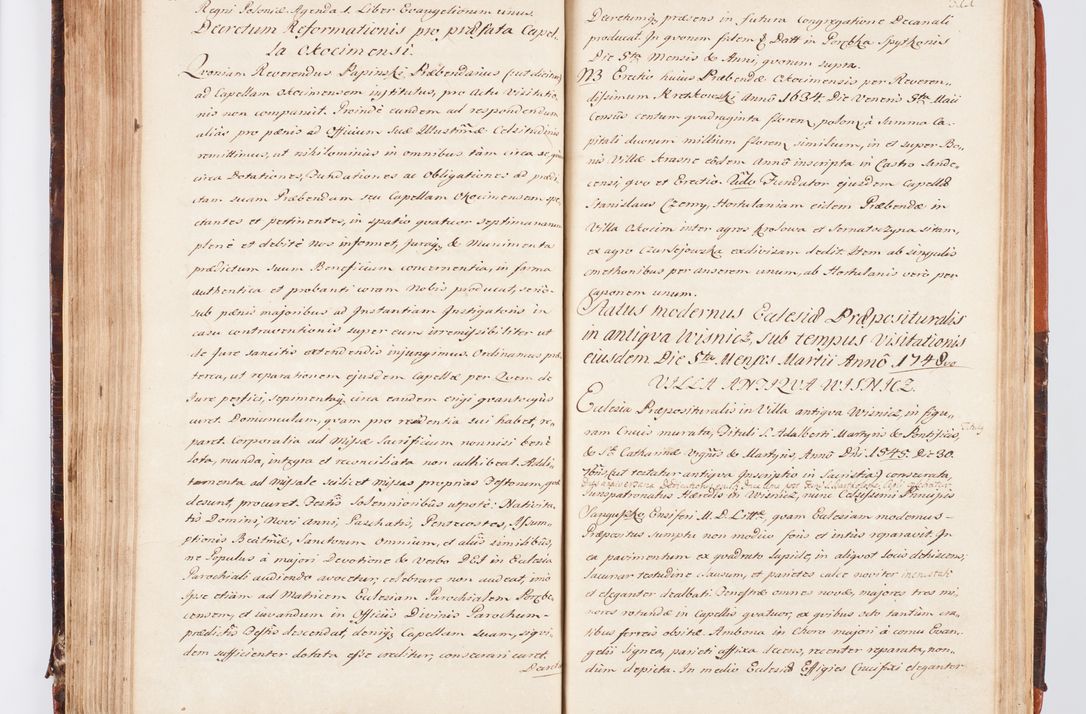 Regni Poloniæ Agenda 1. Liber Evangeliorum unus.
Decretum Reformationis pro præfata Capel-
la Okocimensi
Qvoniam Reverendus Papinski Præbendarius (ut dicitur)
ad Capellam Okocimensem institutus, pro Actu Visitatio-
nis non comparuit. Proindè eundem ad respondendum
aliàs pro pænis ad Officium Suæ Illustrimæ Celsitudinis
remittimus, ut nihilominùs in omnibus tàm circa
circa Dotationes, Fundationes ac Obligationes ad prædi-
ctam suam Præbendam seu Capellam Okocimensem spe-
ctantes et pertinentes, in spatio qvatuor septimanarum
plenè et debitè nos informet, juraq; & Munimenta
prædictum suum Beneficium concernentia, in forma
authentica et probanti coram Nobis producat, seriò
sub pænis majoribus ad Instantiam Instigatoris in
casu contraventionis super eum irremissibiliter ut
de Jure sancitis extendendis injungimus. Ordinamus præ-
terea, ut reparationem ejusdem Capellæ per Qvem de
Jure perfici, sepimentaq; circa eandem erigi qvantociùs
curet. Domunculam, qvam pro residentia sui habet, re-
paret. Corporalia ad Missæ Sacrificium nonnisi benè
lota, munda, integra et reconciliata non adhibeat. Addi-
tamenta ad Missale scilicet Missas proprias Festorum, qvæ
desunt, procuret. Festis Solennioribus utpotè: Nativita-
tis Domini, Novi anni, Paschatis, Pentecostes, Assum-
ptionis Beatmæ, Sanctorum Omnium, et aliis similibus,
ne Populus à majori Devotione & Verbo DEI in Ecclesia
Parochiali audiendo avocetur, celebrare non audeat, imò
Ipse etiàm ad Matricem Ecclesiam Parochialem Porębe-
censem et iuvandum in Officiis Divinis Parochum
prædictis Festis descendat, deniq; Capellam suam, siqvi-
dem sufficienter dotata esse creditur, consecrari curet.
Decretu
Decretumq; præsens in futura Congregatione Decanali
producat. In qvorum fidem & Datt in Porębka Spytkonis
Die 5ta Mensis & Anni, qvorum supra.
N3 Erectio huius Præbendæ Okocimensis per Reveren-
dissimum Kretkowski Annô 1634. Die Veneris 5ta Maii
Census centum qvadraginta floren polon à Summa Ca-
pitali duorum millium floren similium, in et super Bo-
nis Villæ Krasne eôdem Annô inscripta in Castro Sande-
censi, qvo et Erectio. Fundator ejusdem Capellæ
Stanislaus Czerny, Hortulaniam eidem Præbendæ in
Villa Okocim inter agros Krolowa et Sernatoszyna sitam,
ex agro Czuriejowska exdivisam dedit. Item ab singulis
cmethonibus per anserem unum, ab Hortulanis verò per
caponem unum.
Status modernus Ecclesiæ Præposituralis
in antiqva Wisnicz, sub tempus Visitationis
eiusdem Die 5ta Mensis Martii Annô 1748vo
VILLA ANTIQVA WISNICZ.
Ecclesia Præposituralis in Villa antiqva Wisnicz, in figu-
ram Crucis murata, Tituli S. Adalberti Martyris & Pontificis,
& Stæ Catharinæ Virginis & Martyris, Anno Dni 1545. Die 30.
(ut testatur antiqva Inscriptio in Sacristia) consecrata,
Jurispatronatus Hæredis in Wisnicz, nunc Celsissimi Principis
Sangusko Ensiferi M. D. Litt, qvam Ecclesiam modernus
Præpositus sumptu non modico foris et intùs reparavit. In
ea pavimentum ex qvadrato lapide, in aliqvot locis dehiscens,
lacunar testudine clausum, et parietes calce noviter incrustati
et eleganter dealbati. Fenestræ omnes novæ, majores tres mi-
nores rotundæ in Capellis qvatuor, ex qvibus octo tantùm cra-
tibus ferreis obsitæ. Ambona in Choro majori à cornu Evan-
gelii lignea, parieti affixa decens, recenter reparata, non-
dùm depicta. In medio Ecclesiæ Effigies Crucifixi eleganter